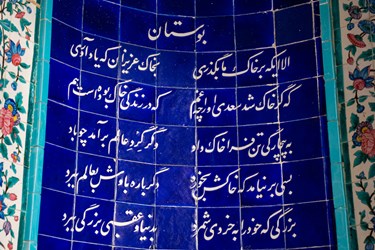 بوستان
الا ایکه بر خاک ما بگذری بخاک عزیزان که یاد آوری
که گر خاک شد سعدی او را چه غم که در زندگی خاک بوده است هم
به بیچارگی تن فرا خاک داد وگر گرد عالم برآمد چو باد
بسی برنیاید که خاکش خورد دگر باره بادش بعالم برد
بزرگی که خود را بخردی شمرد بدنیا و عقبی بزرگی ببرد